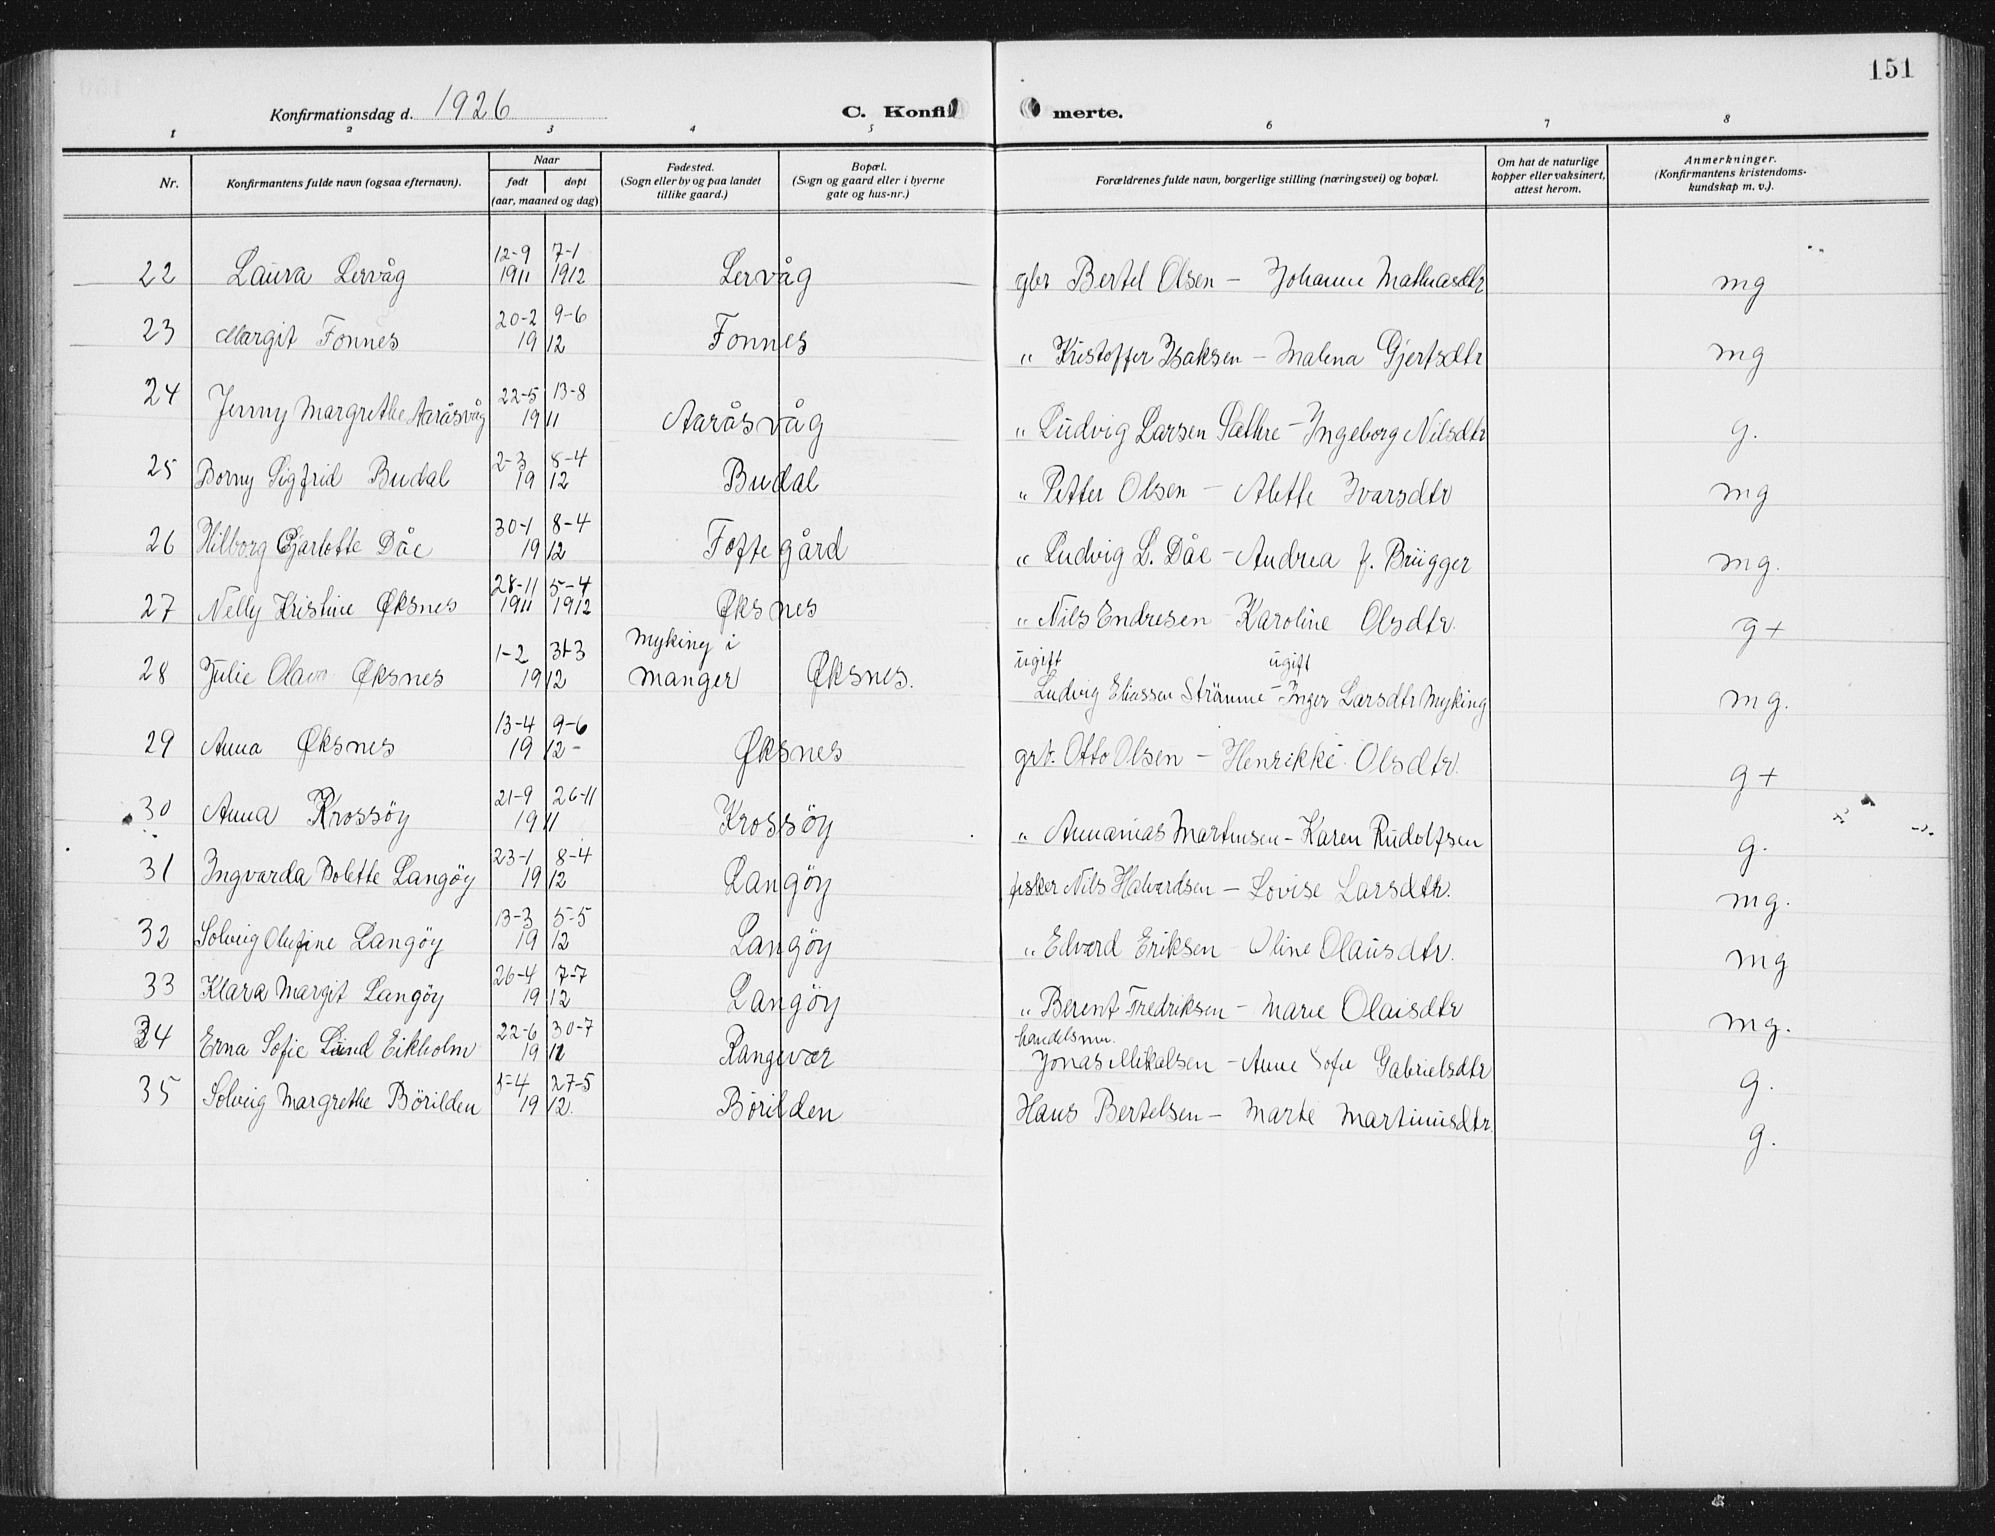 151
Konfirmationsdag d. 1926 C. Konfirmerte.
1 2 3 4 5 6 7 8
Nr. Konfirmantens fulde navn (ogsaa efternavn). Naar født døpt (aar, maaned og dag) Fødested. (Sogn eller by og paa landet tillike gaard.) Bopæl. (Sogn og gaard eller i byerne gate og hus-nr.) Forældrenes fulde navn, borgerlige stilling (næringsvei) og bopæl. Om hat de naturlige kopper eller vaksinert, attest herom. Anmerkninger. (Konfirmantens kristendomskundskap m. v.).
22 Laura Lervåg 12-9 1911 7-1 1912 Lervåg gbr Bertel Olsen - Johanne Mathiasdtr mg
23 Margit Fonnes 20-2 9-6 1912 Fonnes " Kristoffer Isaksen - Malena Gjertsdtr mg
24 Jenny Margrethe Aaråsvåg 22-5 13-8 1911 Aaråsvåg " Ludvig Larsen Sæthre - Ingeborg Nilsdtr g.
25 Borny Sigfrid Budal 2-3 8-4 1912 Budal " Petter Olsen - Alette Ivarsdtr mg
26 Hilborg Gjarlotte Dåe 30-1 8-4 1912 Toftegård " Ludvig L. Dåe - Andrea f. Brügger mg.
27 Nelly Kristine Øksnes 28-11 1911 5-4 1912 Øksnes " Nils Endresen - Karoline Olsdtr. g+
28 Julie Olava Øksnes 1-2 31-3 1912 Myking i Manger Øksnes. ugift Ludvig Eliassen Strømme - ugift Inger Larsdtr Myking mg.
29 Anna Øksnes 13-4 9-6 1912 - Øksnes grb. Otto Olsen - Henrikke Olsdtr. g+
30 Anna Krossöy 21-9 26-11 1911 Krossöy " Annanias Martinsen - Karen Rudolfsen g.
31 Ingvarda Bolette Langöy 23-1 8-4 1912 Langöy fisker Nils Halvardsen - Lovise Larsdtr. mg.
32 Solveig Olufine Langöy 13-3 5-5 1912 Langöy " Edvard Eriksen - Oline Olausdtr. mg
33 Klara Margit Langöy 26-4 7-7 1912 Langöy " Berent Fredriksen - Marie Olaisdtr mg.
34 Erna Sofie Lund Eikholm 22-6 30-7 1912 Rangevær handelsm. Jonas Mikalsen - Anne Sofie Gabrielsdtr g.
35 Solveig Margrethe Börilden 5-4 27-5 1912. Börilden Hans Bertelsen - Marte Martinusdtr. g.